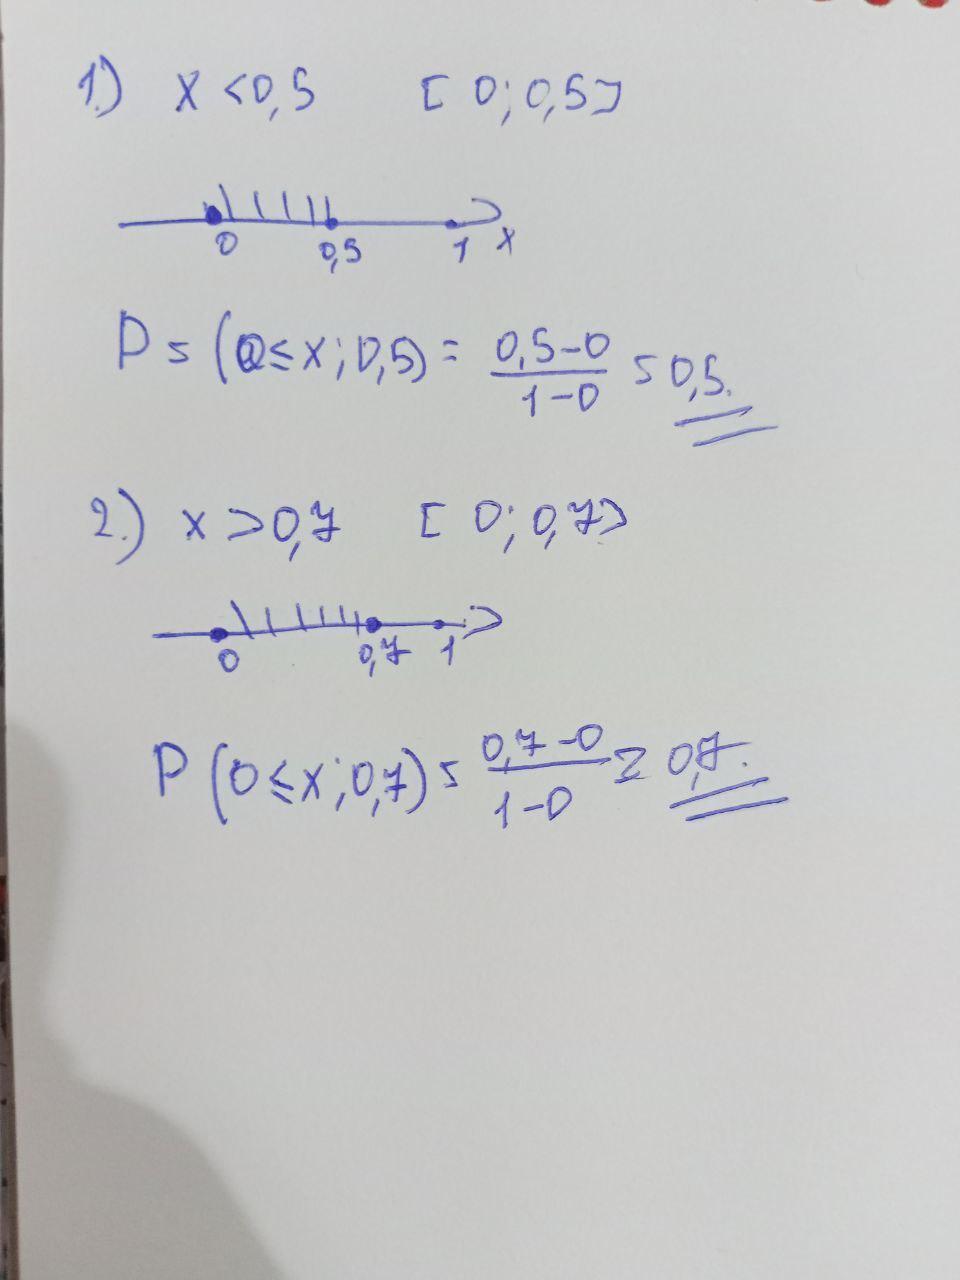 1.) x < 0,5 [ 0; 0,5 ]
0 0,5 1 x
P = (0 ≤ x; 0,5) = (0,5-0)/(1-0) = 0,5.
2.) x > 0,7 [ 0; 0,7 )
0 0,7 1
P (0 ≤ x; 0,7) = (0,7-0)/(1-0) = 0,7.